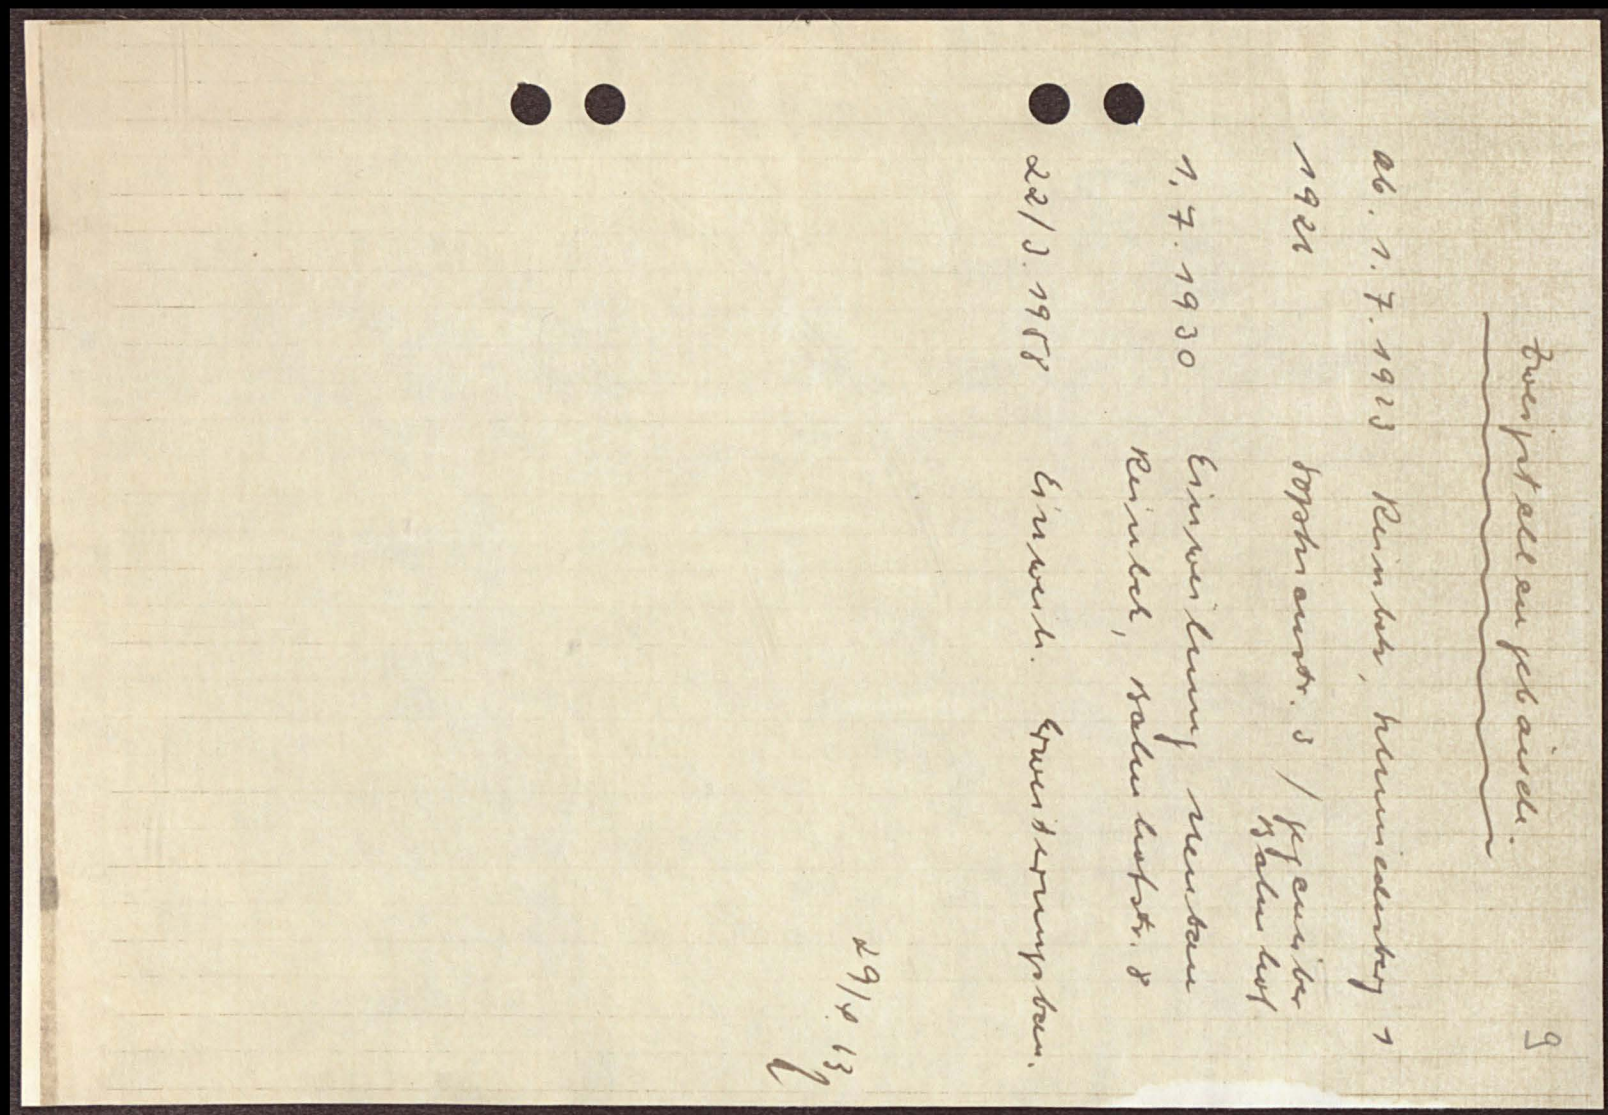 9
Zweigstellengebäude.
ab. 1.7.1923 Reinbek, Schmiedesberg 1
1928 Sophienstr. 3 / gegenüber
Bahnhof
1.7.1930 Einweihung Neubau
Reinbek, Bahnhofstr. 8
22/3.1958 Einweih. Erweiterungsbau.
29/4.63